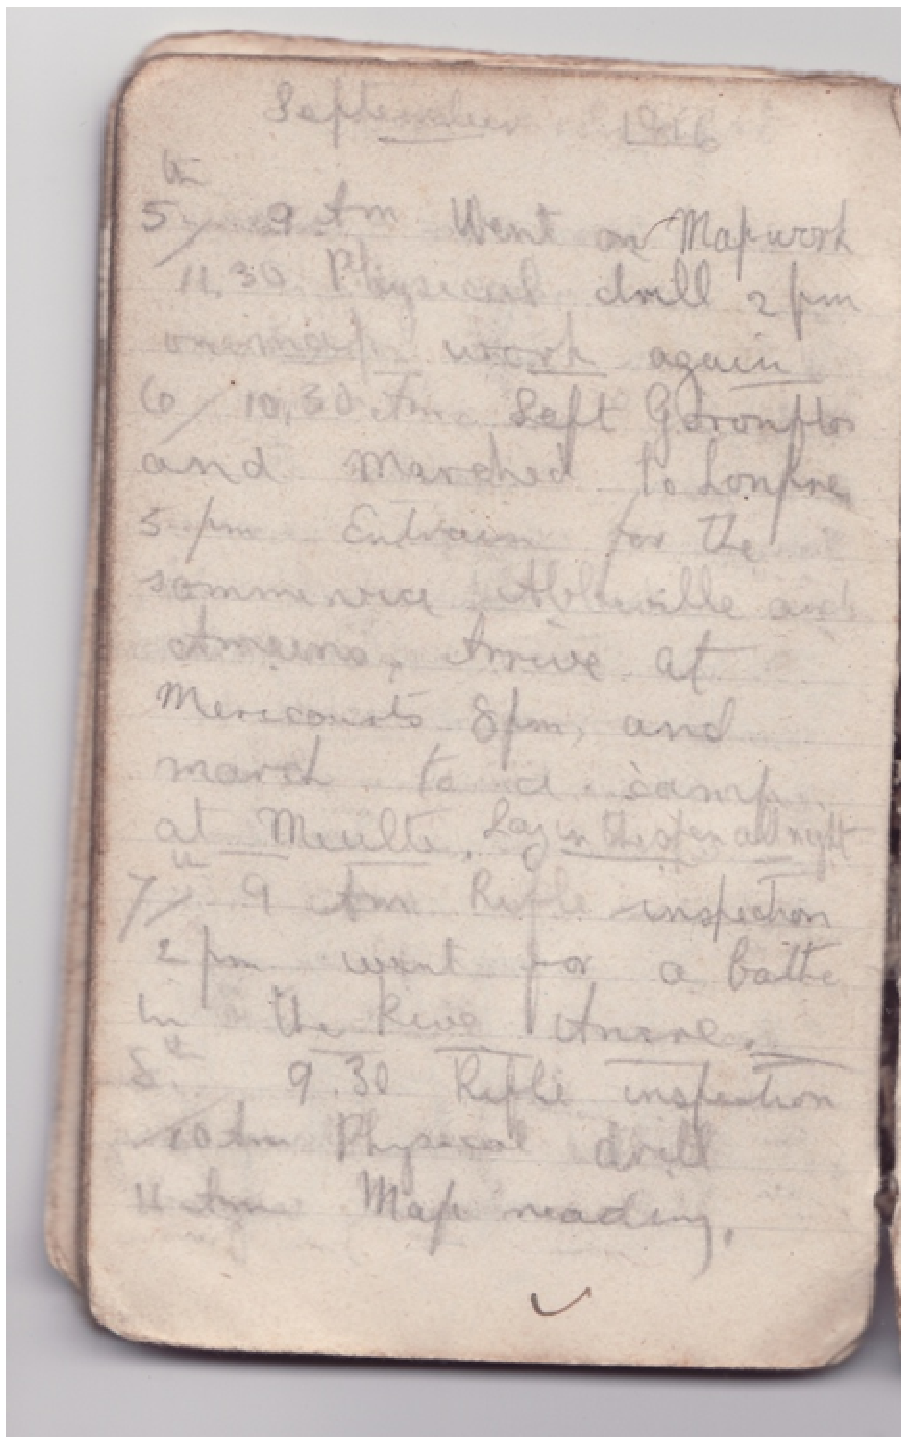 September 1916
th
5/ 9 Am Went on Mapwork
11.30 Physical drill 2 pm
on map work again
6/ 10,30 Am Left
and Marched to Lonpre
5 pm Entrain for the
somme Abbeville and
Ameins. Arrive at
Mericourts 8pm, and
march to a camp
at Meulte. Lay in the open all night
th
7/ 9 Am Rifle inspection
2 pm went for a bathe
in the River Ancre.
8th 9.30 Rifle inspection
10 Am Physical drill
11 Am Map reading.